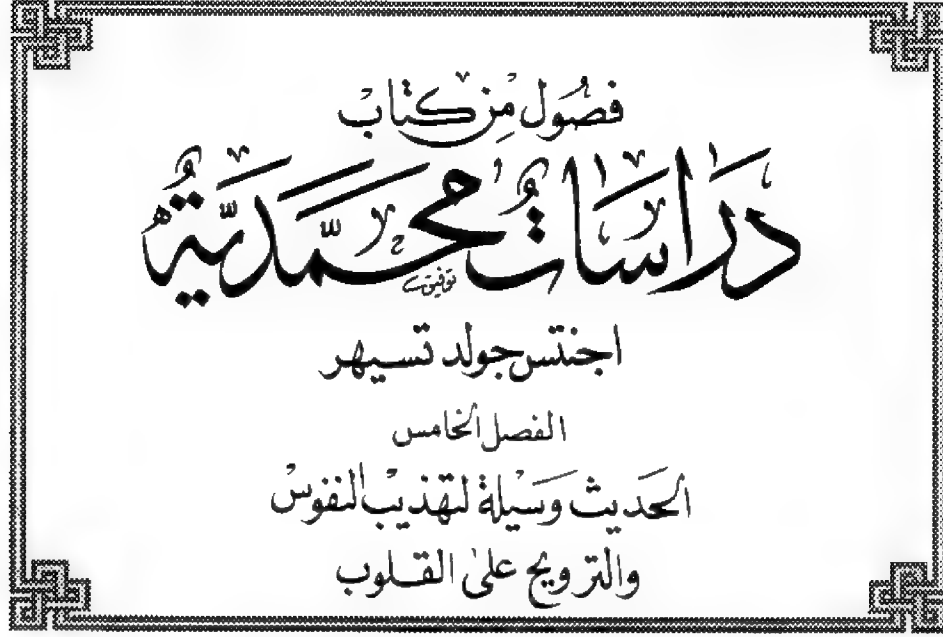 فصُول مِن كتاب
دَرَاسَاتٌ محَمَّديَّةٌ
توفيق
اجنتس جولد تسيهر
الفصل الخامس
الحَديث وَسيلة لتهذيب النفوسْ
والترويح على القلوب